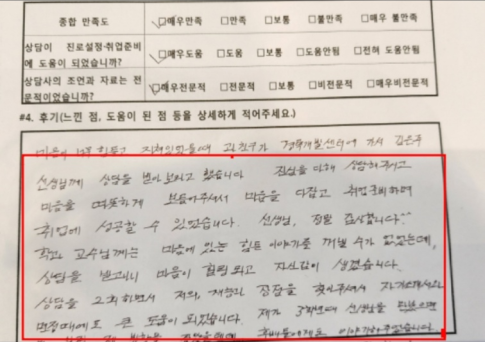 종합 만족도 ☑매우만족 □만족 □보통 □불만족 □매우 불만족
상담이 진로설정·취업준비에 도움이 되었습니까? ☑매우도움 □도움 □보통 □도움안됨 □전혀 도움안됨
상담사의 조언과 자료는 전문적이었습니까? ☑매우전문적 □전문적 □보통 □비전문적 □매우비전문적
#4. 후기(느낀 점, 도움이 된 점 등을 상세하게 적어주세요.)
마음이 너무 힘들고 지쳐있을때 경력개발센터에 가서
선생님께 상담을 받아보라고 했습니다 진심을 다해 상담해주시고
마음을 따뜻하게 보듬어주셔서 마음을 다잡고 취업준비하며
취업에 성공할 수 있었습니다. 선생님, 정말 감사합니다^^
학과 교수님께는 마음에 있는 힘든 이야기를 꺼낼 수가 없었는데,
상담을 받고나니 마음이 힐링되고 자신감이 생겼습니다.
상담을 2회하면서 저의 장점을 찾아주셔서 자기소개서와
면접때에도 큰 도움이 되었습니다. 제가 3학년때 선생님을
후배들에게도